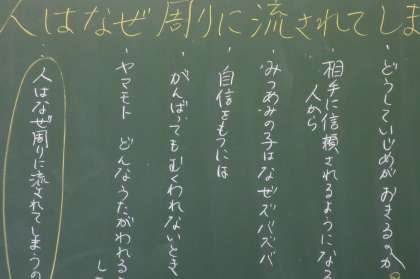 人はなぜ周りに流されてしま
・どうしていじめがおきるのか
相手に信頼されるようになる
人から
・みつあみの子はなぜズバズバ
・自信をもつには
・がんばってもむくわれないとき
・ヤマモト どんなうたがわれる
・人はなぜ周りに流されてしまうの